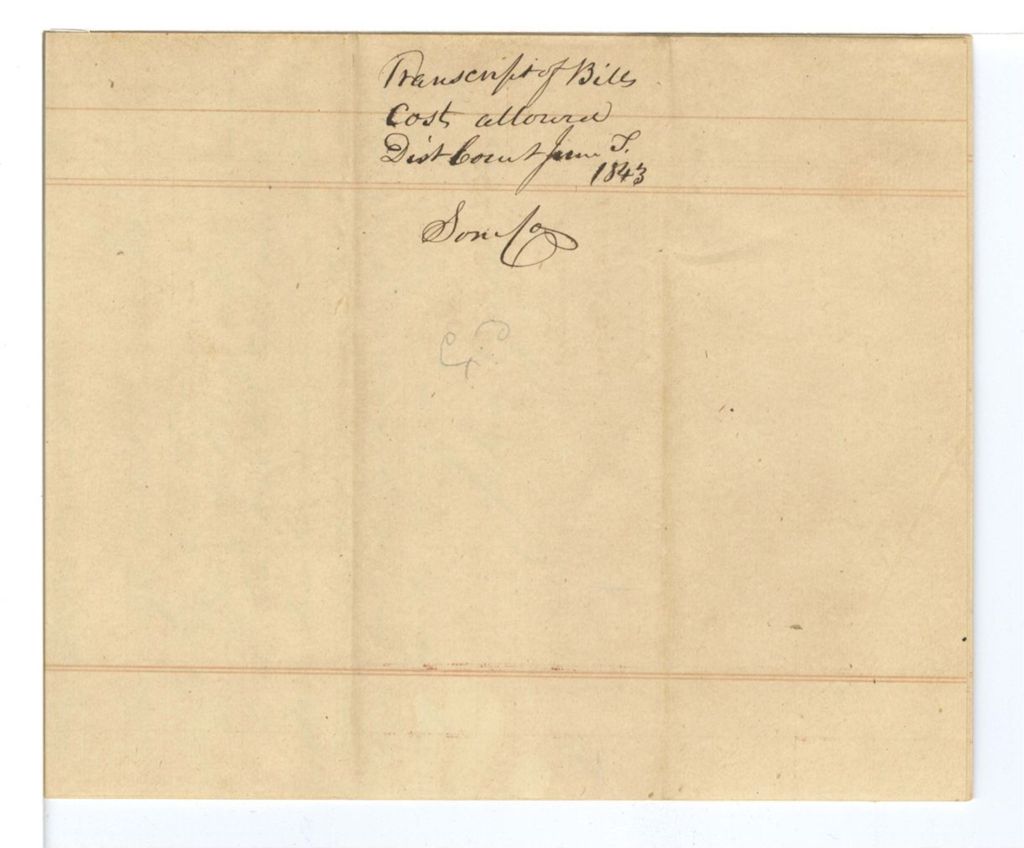 Transcript of Bills
Cost allowed
Dist Court June T.
1843
Som Co